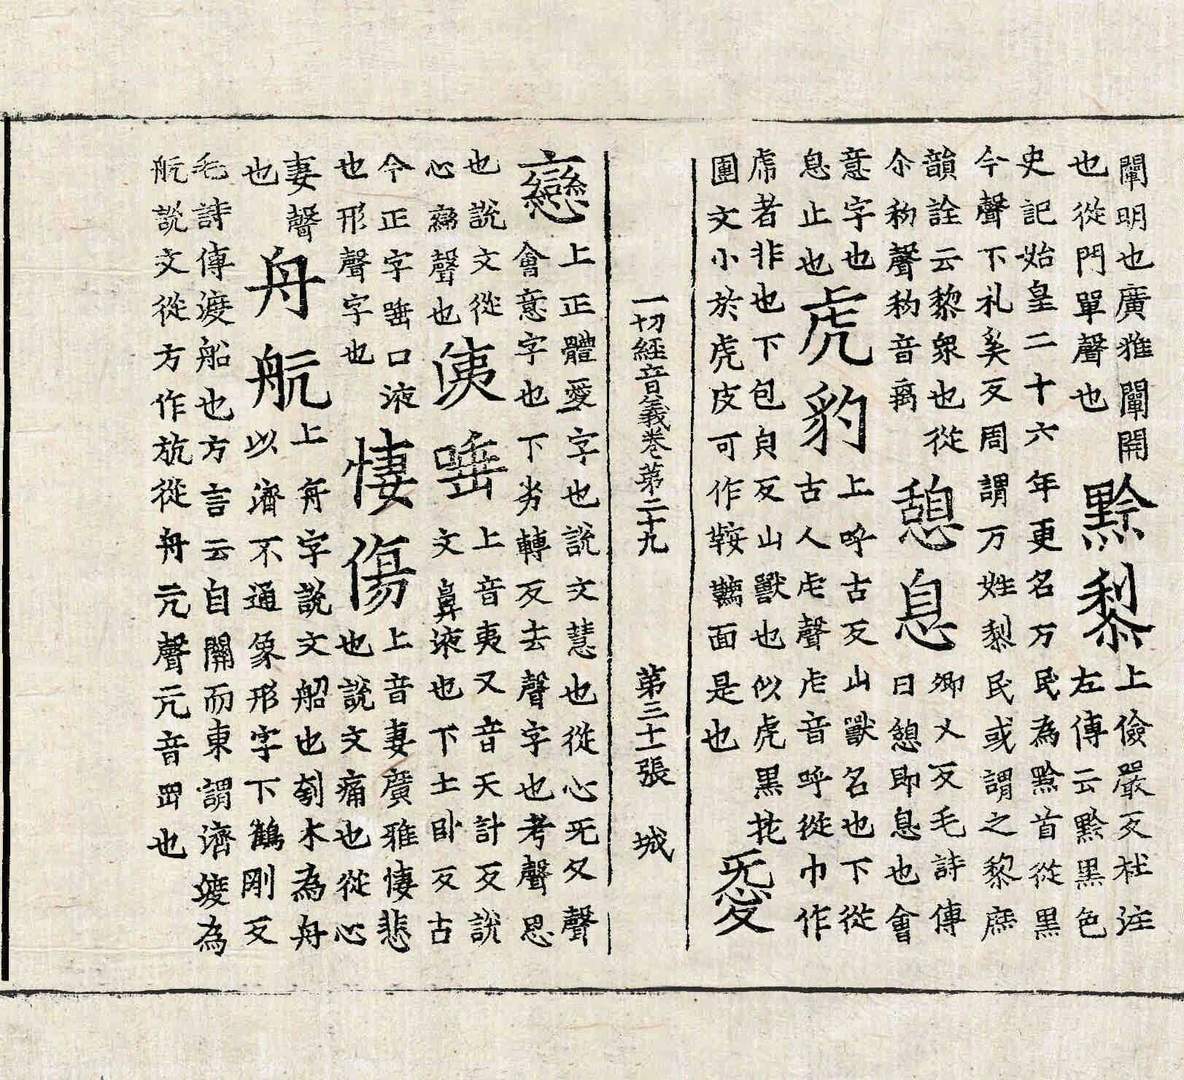 闡明也廣雅闡開
也從門單聲也
黔黎
上儉嚴反杜注
左傳云黔黑色
史記始皇二十六年更名万民為黔首從黑
今聲下礼奚反周謂万姓黎民或謂之黎庶
韻詮云黎衆也從
尒礿聲礿音离
憩息
卿乂反毛詩傳
曰憩即息也會
意字也
息止也
虎豹
上呼古反山獸名也下從
古人虍聲虍音呼從巾作
乕者非也下包皃反山獸也似虎黑花
團文小於虎皮可作鞍韉面是也
㤅
一切經音義卷第二十九 第三十一張 城
戀
上正體愛字也說文慧也從心旡夂聲
會意字也下劣轉反去聲字也考聲思
也說文從
心䜌聲也
洟唾
上音夷又音天計反說
文鼻液也下土卧反古
今正字唾口液
也形聲字也
悽傷
上音妻廣雅悽悲
也說文痛也從心
妻聲
也
舟航
上舟字說文船也刳木為舟
以濟不通象形字下鶴剛反
毛詩傳渡船也方言云自關而東謂濟渡為
航說文從方作斻從舟亢聲亢音罡也